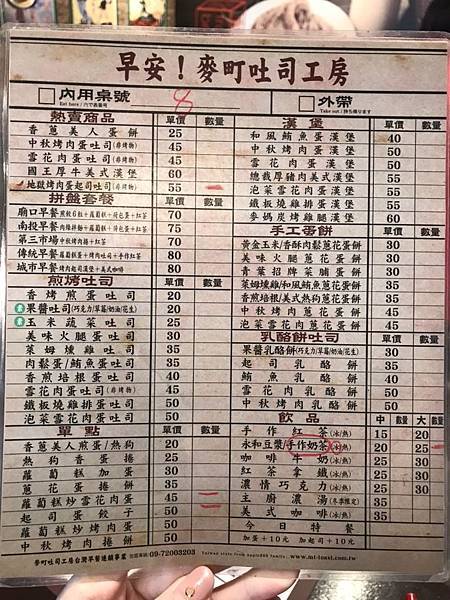 早安！麥町吐司工房
內用桌號 8
外帶
Eat here / 內で召籠る
Take out / 持ち帰ります
熱賣商品 單價 數量
香蔥美人蛋餅 25
中秋烤肉蛋吐司(非烤物) 45
雪花肉蛋吐司(非烤物) 45
國王厚牛美式漢堡 60
地獄烤肉蛋起司吐司(非烤物) 55 一
拼盤套餐 單價 數量
廟口早餐 煎餃6粒+蘿蔔糕+荷包蛋+紅茶 70
南投早餐 肉絲拌麵+蘿蔔糕+荷包蛋+紅茶 75
第三市場 中秋烤肉捲+紅茶 70
傳統早餐 蘿蔔糕+烤肉吐司+手作紅茶 80
城市早餐 烤肉起司漢堡+美式咖啡 80
煎烤吐司 單價 數量
香烤煎蛋吐司 20
素 果醬吐司(巧克力/草莓/奶油/花生) 20
素 玉米蔬菜吐司 25
美味火腿蛋吐司 30
萊姆燻雞吐司 35
肉鬆蛋/鮪魚蛋吐司 35
香煎培根蛋吐司 40
雪花肉蛋吐司(非烤物) 45
鐵板燒雞排蛋吐司 50
泡菜雪花肉蛋吐司 50
單點 單價 數量
香蔥美人煎蛋/熱狗 20
熱狗香蛋捲 25
蘿蔔糕加蛋 30
蔥花蛋捲餅 35
蘿蔔糕炒雪花肉蛋 45 二
起司蛋餃子 50
蘿蔔糕炒烤肉蛋 50
中秋烤肉捲餅 50
漢堡 單價 數量
和風鮪魚蛋漢堡 40
中秋烤肉蛋漢堡 50
雪花肉蛋漢堡 50
總裁厚豬肉美式漢堡 55
泡菜雪花肉蛋漢堡 60
鐵板燒雞排蛋漢堡 55
麥媽炭烤雞腿漢堡 60
手工蛋餅 單價 數量
黃金玉米/香酥肉鬆蔥花蛋餅 30
美味火腿蔥花蛋餅 30
青葉招牌菜脯蛋餅 30
萊姆燻雞/和風鮪魚蔥花蛋餅 35
香煎培根/美式熱狗蔥花蛋餅 35
中秋烤肉蔥花蛋餅 45
泡菜雪花肉蔥花蛋餅 45
乳酪餅吐司 單價 數量
果醬乳酪餅(巧克力/草莓/奶油/花生) 30
起司乳酪餅 35
鮪魚乳酪餅 40
雪花肉乳酪餅 50
中秋烤肉乳酪餅 50
飲品 中 數量 大 數量
手作紅茶(冰/熱) 15 20
永和豆漿/手作奶茶(冰/熱) 20 25 一
咖啡牛奶(冰/熱) 25 30
紅茶拿鐵(冰/熱) 25 30
濃情巧克力(冰/熱) 25 30
主廚濃湯(冬季限定) 35
美式咖啡(冰/熱) 35
今日特餐
加蛋+10元 加起司+10元
麥町吐司工房台灣早餐連鎖事業 加盟專線:09-72003203
www.mt-toast.com.tw